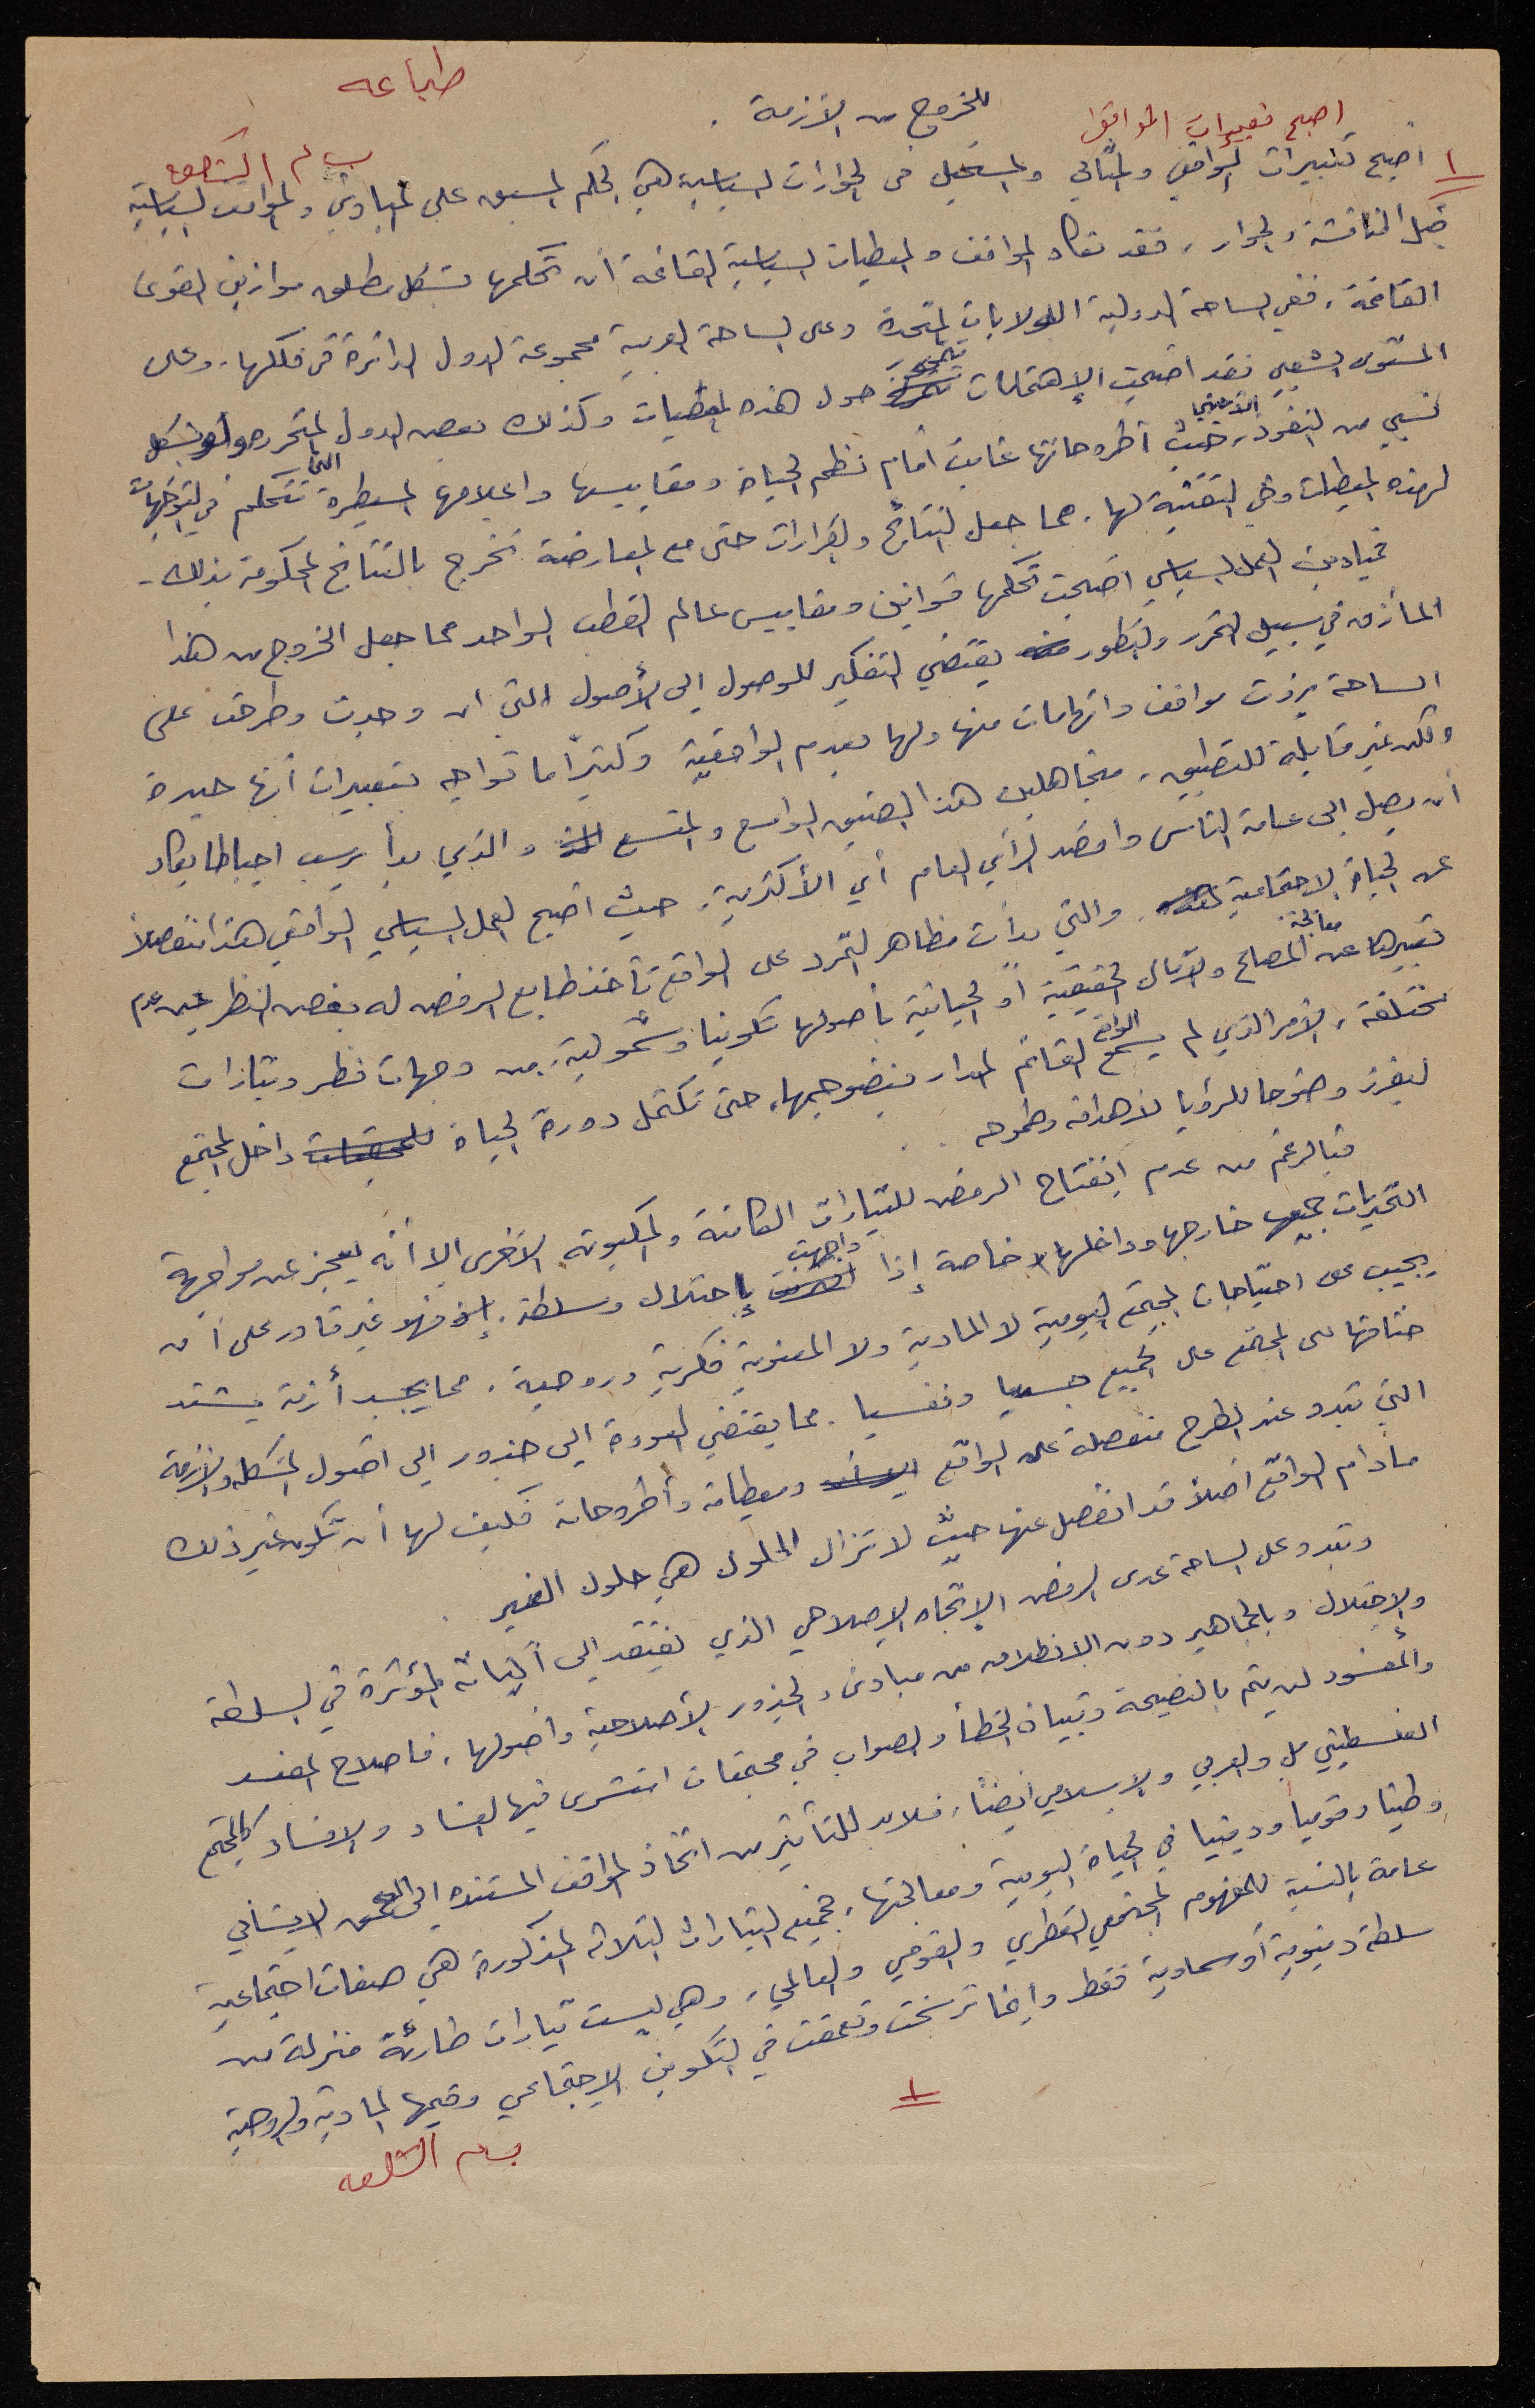 طباعه
للخروج من الأزمة .
اصبح تعبيرات الواقع
١
اصبح تعبيرات الواقعي والمثالي والمستحيل في الحوارات السياسية هي الحكم المسبق على المبادئ والمواقف السياسية
قبل المناقشة والحوار ، فقد تكاد المواقف والمعطيات السياسية القائمة أن تحكمها بشكل مطلق موازين القوى
القائمة ، ففي الساحة الدولية الولايات المتحدة وعلى الساحة العربية مجموعة الدول الدائرة في فلكها . وعلى
المستوى الشعبي فقد اضحت الإهتمامات تتمحور حول هذه المعطيات وكذلك بعض الدول المتحررة ولو بشكل
نسبي من النفوذ الأجنبي ، حيث أطروحاتها غابت أمام نظم الحياة ومقاييسها واعلامها المسيطرة التي تتحكم في التوجهات
لهذه المعطيات وفي التقنية لها . مما جعل النتائج والقرارات حتى مع المعارضة تخرج بالنتائج المحكومة بذلك .
فميادين العمل السياسي اضحت تحكمها قوانين ومقاييس عالم القطب الواحد مما جعل الخروج من هذا
المأزق في سبيل التحرر والتطور يقتضي التفكير للوصول إلى الأصول التي ان وجدت وطرحت على
الساحة برزت مواقف واتهامات منها ولها بعدم الواقعية وكثيراً ما تواجه بتعبيرات أنها جيدة
ولكن غير قابلة للتطبيق . متجاهلين هذا الضيق الواسع والمتسع والذي بدأ يسبب احباطا يكاد
أن يصل إلى عامة الناس واقصد الرأي العام أي الأكثرية ، حيث اصبح العمل السياسي الواقعي هذا منفصلاً
عن الحياة الاجتماعية ، والتي بدأت مظاهر التمرد على الواقع تأخذ طابع الرفض له بغض النظر عن عدم
تعبيرها عن معالجة المصالح والآمال الحقيقية أو الحياتية بأصولها تكوينا وشمولية ، من وجهات نظر وتيارات
مختلفة ، الأمر الذي لم يسمح الواقع القائم المدار بنضوجها ، حتى تكتمل دورة الحياة داخل المجتمع
ليفرز وضوحا للرؤيا لأهدافه وطموحه
فبالرغم من عدم إنفتاح الرفض للتيارات الكامنة والمكبوتة الأخرى إلا أنه يعجز عن مواجهة
التحديات جميعها خارجها وداخلها خاصة إذا واجهت إحتلال وسلطة . إذ فهو غير قادر على أن
يجيب على احتياجات المجتمع اليومية لا المادية ولا المعنوية فكرية وروحية ، مما يجسد أزمة يشتد
خناقها على المجتمع على الجميع جسديا ونفسيا . مما يقتضي العودة إلى جذور إلى اصول المشكلة والأزمة
التي تبدو عند الطرح منفصلة على الواقع ومعطياته وأطروحاته فكيف لها أن تكون غير ذلك
مادام الواقع اصلاً قد انفصل عنها حيث لا تزال الحلول هي حلول الغير .
وتبدو على الساحة لدى الرفض الإتجاه الإصلاحي الذي يفتقد إلى آلياته المؤثرة في السلطة
والإحتلال وبالجماهير دون الانطلاق من مبادئ والجذور الأصلاحية وأصولها ، فاصلاح المفسد
والمفسود لن يتم بالنصيحة وتبيان الخطأ والصواب في مجتمعات استشرى فيها الفساد والافساد كالمجتمع
الفلسطيني بل والعربي والإسلامي أيضاً ، فلابد للتأثير من اتخاذ المواقف المستندة إلى العمق الإنساني
وطنيا وقوميا ودينيا في الحياة اليومية ومعالجتها ، فجميع التيارات الثلاثة المذكورة هي صفات اجتماعية
عامة بالنسبة للمفهوم المجتمعي القطري والقومي والعالمي ، وهي ليست تيارات طارئة منزلة من
سلطة دنيوية أو سماوية فقط وإنما ترسخت وتعمقت في التكوين الإجتماعي وقيمها المادية والروحية
١